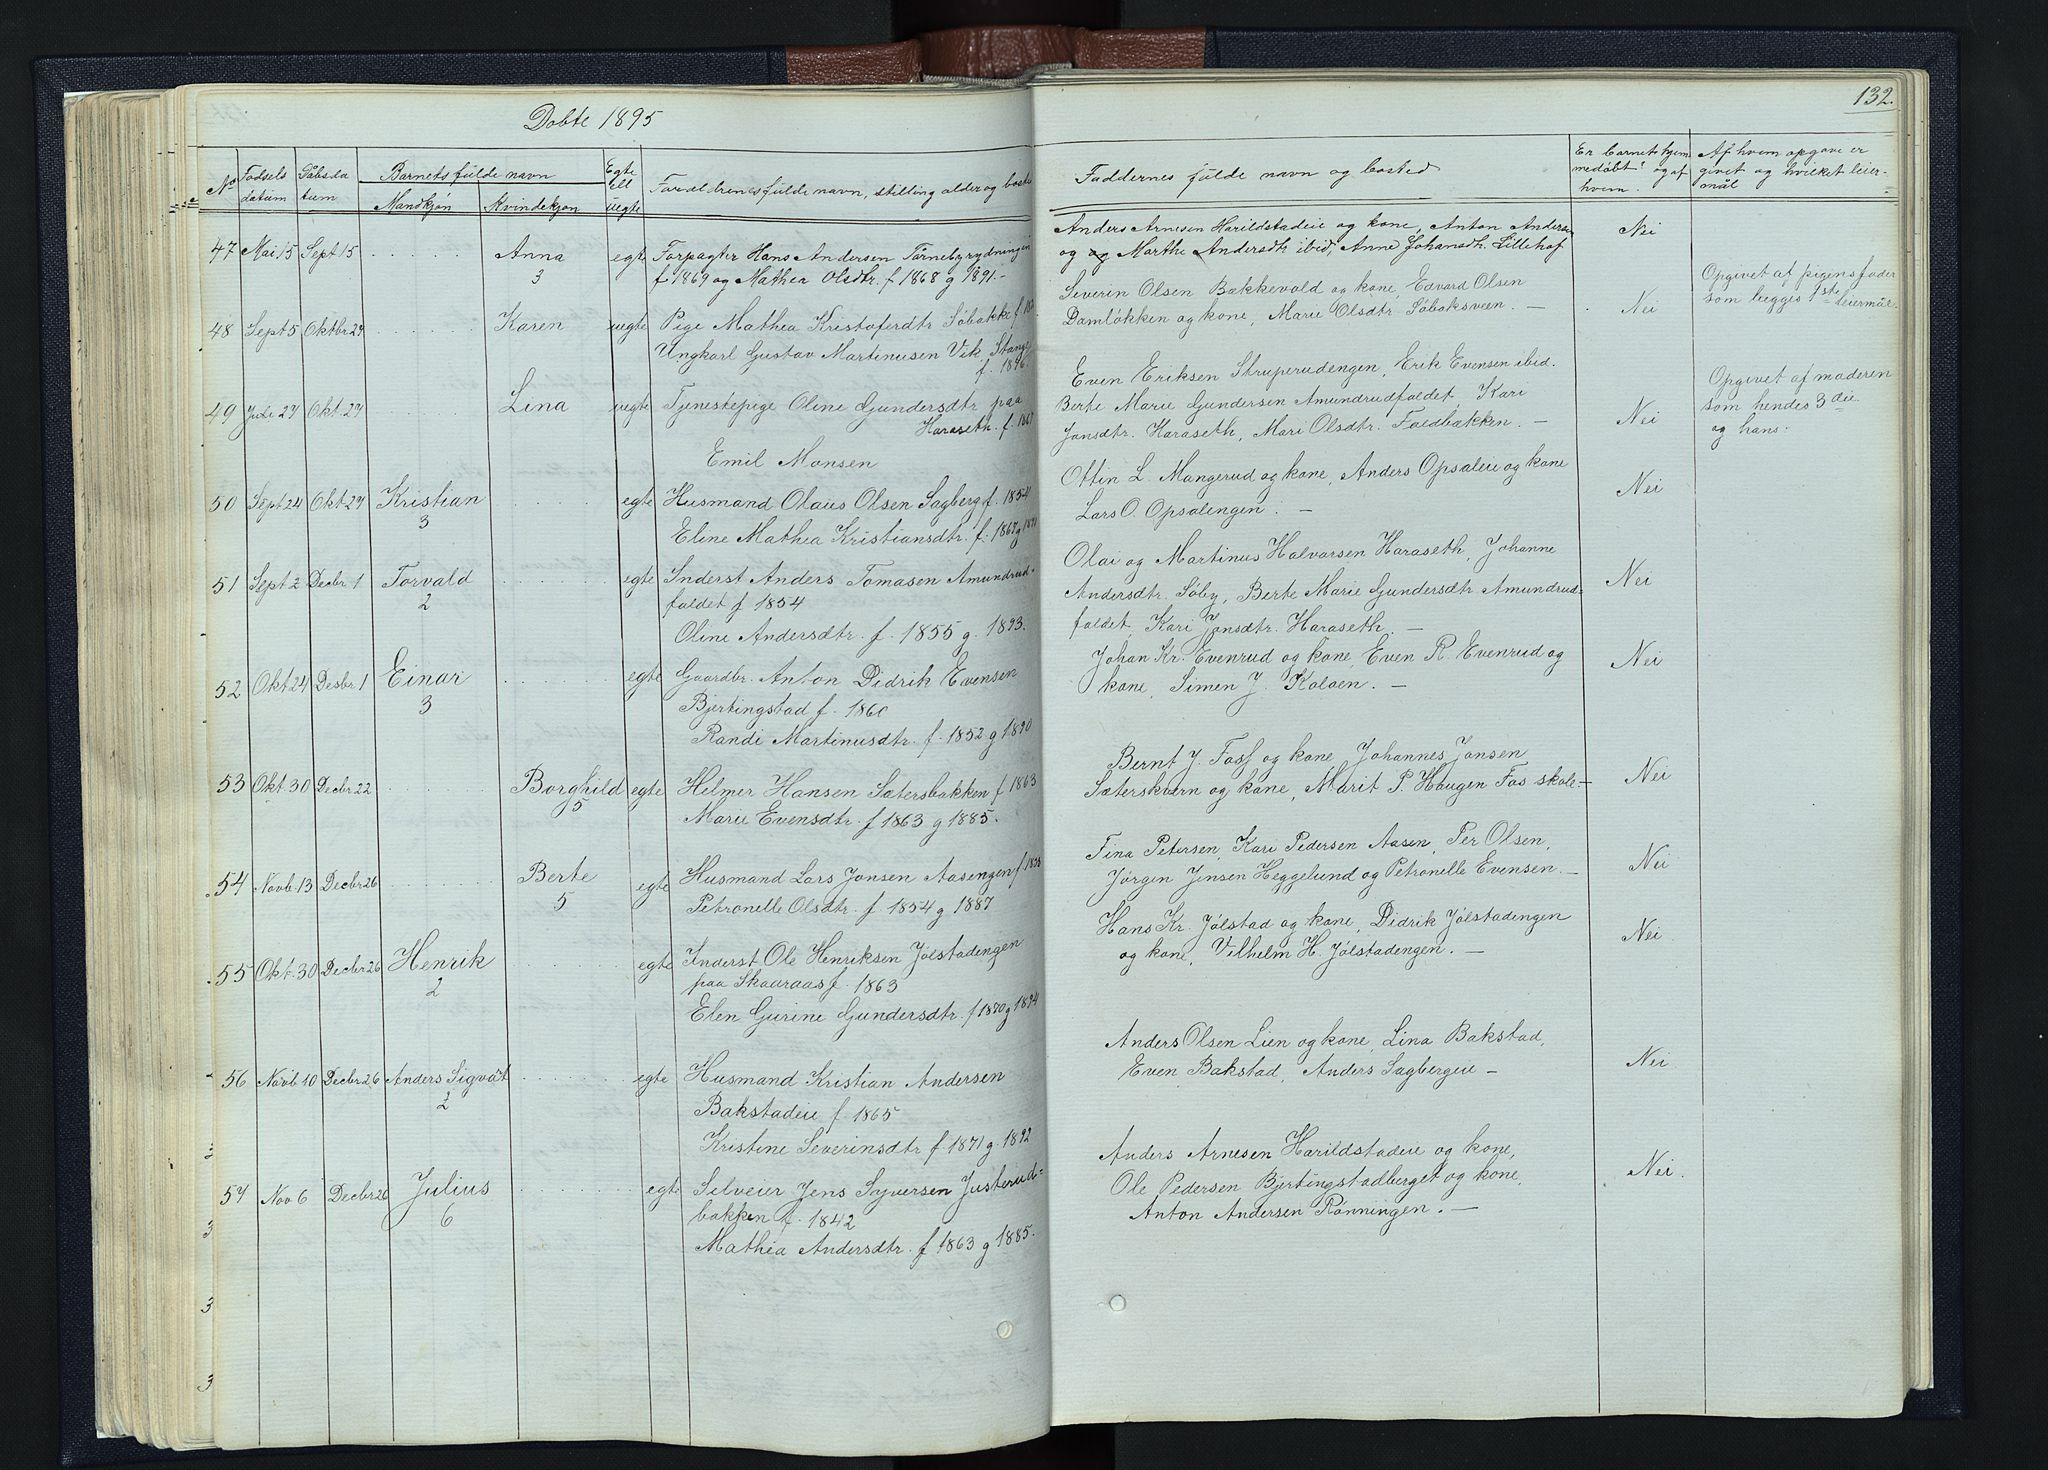 Døbte 1895
132.
No
Fødsels datum
Dåbsdatum
Barnets fulde navn
Mandkjøn
Kvindekjøn
Egte ell uegte
Forældrenes fulde navn, stilling alder og bosted
Faddernes fulde navn og bosted
Er barnet hjemmedøbt? og af hvem.
Af hvem opgave er givet og hvilket leiermål
47 Mai 15 Sept 15 Anna 3 egte Forpagter Hans Andersen Tørnebyrydningen
f 1869 og Mathea Olsdtr. f 1868 g 1891.-
Anders Arnesen Harildstadeie og kone, Anton Andersen
og og Marthe Andersdtr ibid, Anne Johansdtr. Lillehof
Nei
48 Sept 5 Oktbr 27 Karen uegte Pige Mathea Kristoferdtr Søbakke
Ungkarl Gustav Martinusen Vik, Stange
f. 1876.
Severin Olsen Bækkevold og kone, Edvard Olsen
Damløkken og kone, Marie Olsdtr. Søbaksveen. —
Nei
Opgivet af pigens fader
som begges 1ste leiermål
49 Juli 27 Okt 27 Lina uegte Tjenestepige Oline Gundersdtr paa
Haraseth. f. 1867
Emil Monsen
Even Eriksen Struperudengen, Erik Evensen ibid.
Berte Marie Gundersen Amundrudfaldet, Kari
Jonsdtr. Haraseth, Mari Olsdtr. Foldbækken. —
Nei
Opgivet af moderen
som hendes 3die
og hans.
50 Sept 24 Okt 27 Kristian 3 egte Husmand Olaus Olsen Sagberg f. 1854
Eline Mathea Kristiansdtr. f. 1867 g 1891
Ottin L. Mangerud og kone, Anders Opsaleie og kone
Lars O. Opsalengen. —
Nei
51 Sept 2 Decbr 1 Torvald 2 egte Inderst Anders Tomasen Amundrud-
faldet f 1854
Oline Andersdtr. f. 1855 g. 1893.
Olai og Martinus Halvorsen Haraseth, Johanne
Andersdtr. Søby, Berte Marie Gundersdtr Amundrud-
faldet, Kari Jonsdtr. Haraseth. —
Nei
52 Okt 24 Desbr 1 Einar 3 egte Gaardbr. Anton Didrik Evensen
Bjertingstad f. 1860
Randi Martinusdtr. f. 1852 g 1890
Johan Kr. Evenrud og kone, Even R. Evenrud og
kone, Simen J. Koloen. —
Nei
53 Okt. 30 Decbr 22 Borghild 5 egte Helmer Hansen Sætersbakken f 1863
Marie Evensdtr. f 1863 g 1885.
Bernt J. Foss og kone, Johannes Jonsen
Sæterskvern og kone, Marit P. Haugen Fos skole—
Nei
54 Novb. 13 Decbr 26 Berte 5 egte Husmand Lars Jonsen Aasengen
Petronelle Olsdtr. f. 1854 g 1887
Fina Petersen, Kari Pedersen Aasen, Per Olsen,
Jørgen Jensen Heggelund og Petronelle Evensen. —
Nei
55 Okt. 30 Decbr 26 Henrik 2 egte Inderst Ole Henriksen Jølstadengen
paa Skaaraas f. 1863
Elen Gurine Gundersdtr. f 1870 g 1894
Hans Kr. Jølstad og kone, Didrik Jølstadengen
og kone, Vilhelm H. Jølstadengen. —
Nei
56 Novb. 10 Decbr 26 Anders Sigvat 2 egte Husmand Kristian Andersen
Bakstadeie f. 1865
Kristine Severinsdtr f 1871 g. 1892
Anders Olsen Lien og kone, Lina Bakstad,
Even Bakstad, Anders Sagbergeie —
Nei
57 Nov 6 Decbr 26 Julius 6 egte Selveier Jens Syversen Justerud-
bakken f. 1842
Mathea Andersdtr. f 1863 g 1885.
Anders Arnesen Harildstadeie og kone,
Ole Pedersen Bjertingstadberget og kone,
Anton Andersen Rønningen. —
Nei.